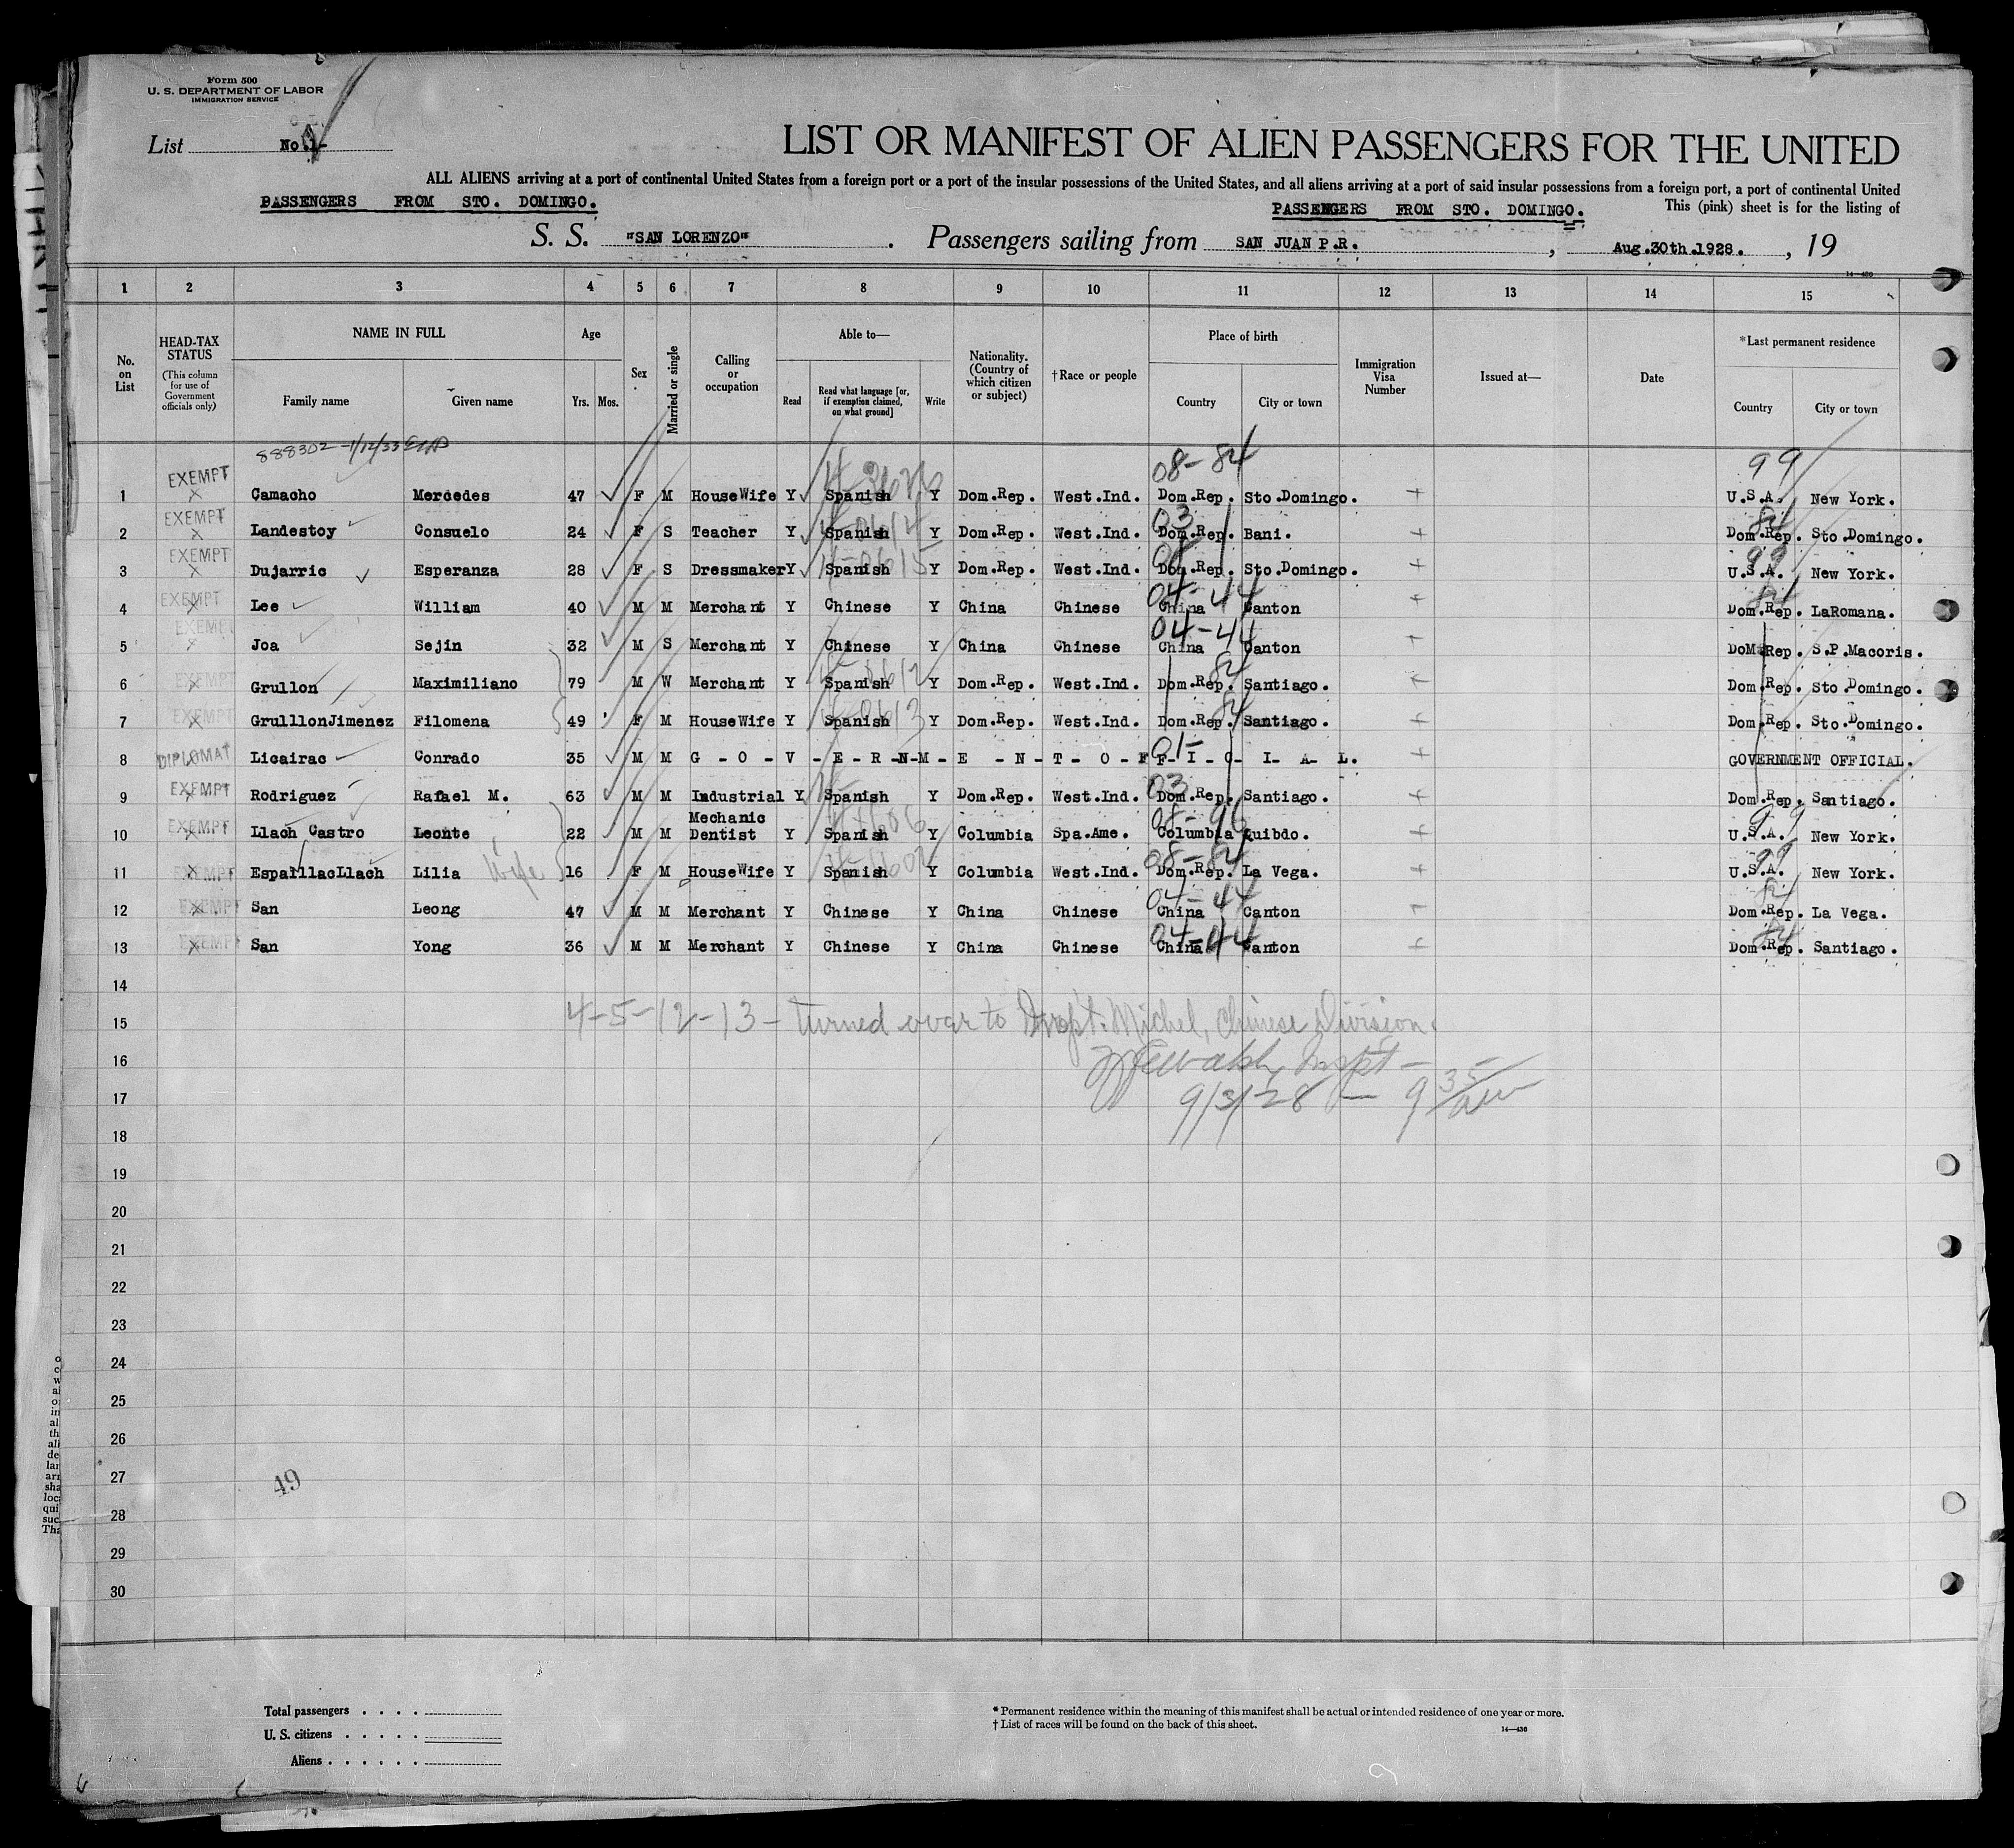 Form 500
U. S. DEPARTMENT OF LABOR
IMMIGRATION SERVICE
List No.1-
LIST OR MANIFEST OF ALIEN PASSENGERS FOR THE UNITED
ALL ALIENS arriving at a port of continental United States from a foreign port or a port of the insular possessions of the United States, and all aliens arriving at a port of said insular possessions from a foreign port, a port of continental United
PASSENGERS FROM STO. DOMINGO. PASSENGERS FROM STO. DOMINGO. This (pink) sheet is for the listing of
S. S. "SAN LORENZO" . Passengers sailing from SAN JUAN P.R. , Aug.30th.1928. , 19
14—430
1 2 3 4 5 6 7 8 9 10 11 12 13 14 15
No. on List
HEAD-TAX STATUS
(This column for use of Government officials only)
NAME IN FULL
Family name Given name
Age
Yrs. Mos.
Sex
Married or single
Calling or occupation
Able to—
Read
Read what language [or, if exemption claimed, on what ground]
Write
Nationality. (Country of which citizen or subject)
†Race or people
Place of birth
Country City or town
Immigration Visa Number
Issued at—
Date
*Last permanent residence
Country City or town
888302 -1/12/33
08-84 99
1 EXEMPT Camacho Mercedes 47 F M HouseWife Y Spanish Y Dom.Rep. West.Ind. Dom.Rep. Sto.Domingo. U.S.A. New York.
03 84
2 EXEMPT Landestoy Consuelo 24 F S Teacher Y Spanish Y Dom.Rep. West.Ind. Dom.Rep. Bani. Dom.Rep. Sto.Domingo.
99
3 EXEMPT Dujarric Esperanza 28 F S Dressmaker Y Spanish Y Dom.Rep. West.Ind. Dom.Rep. Sto.Domingo. U.S.A. New York.
04-44 84
4 EXEMPT Lee William 40 M M Merchant Y Chinese Y China Chinese China Canton Dom.Rep. LaRomana.
04-44
5 EXEMPT Joa Sejin 32 M S Merchant Y Chinese Y China Chinese China Canton DoM.Rep. S.P.Macoris.
84
6 EXEMPT Grullon Maximiliano 79 M W Merchant Y Spanish Y Dom.Rep. West.Ind. Dom.Rep. Santiago. Dom.Rep. Sto.Domingo.
84
7 EXEMPT GrulllonJimenez Filomena 49 F M HouseWife Y Spanish Y Dom.Rep. West.Ind. Dom.Rep. Santiago. Dom.Rep. Sto.Domingo.
01-
8 DIPLOMAT Licairac Conrado 35 M M G - O - V - E - R - N - M - E - N - T - O - F F - I - C - I - A - L. GOVERNMENT OFFICIAL.
03
9 EXEMPT Rodriguez Rafael M. 63 M M Industrial Y Spanish Y Dom.Rep. West.Ind. Dom.Rep. Santiago. Dom.Rep. Santiago.
08-96 99
10 EXEMPT Llach Castro Leonte 22 M M Mechanic Dentist Y Spanish Y Columbia Spa.Ame. Columbia Quibdo. U.S.A. New York.
08-84 99
11 EXEMPT EspaillacLlach Lilia Wife 16 F M HouseWife Y Spanish Y Columbia West.Ind. Dom.Rep. La Vega. U.S.A. New York.
04-44 84
12 EXEMPT San Leong 47 M M Merchant Y Chinese Y China Chinese China Canton Dom.Rep. La Vega.
04-44 84
13 EXEMPT San Yong 36 M M Merchant Y Chinese Y China Chinese China Canton Dom.Rep. Santiago.
14
15 4-5-12-13- turned over to Inspt. Michel, Chinese Division.
16 Inspt-
17 9/3/28 — 9 35 AM
18
19
20
21
22
23
24
25
26
27 49
28
29
30
o
c
w
a
o
in
al
th
all
de
lar
arr
sha
loc
qui
suc
Tha
Total passengers . . . .
U. S. citizens . . . . .
Aliens . . . . . .
* Permanent residence within the meaning of this manifest shall be actual or intended residence of one year or more.
† List of races will be found on the back of this sheet. 14—430